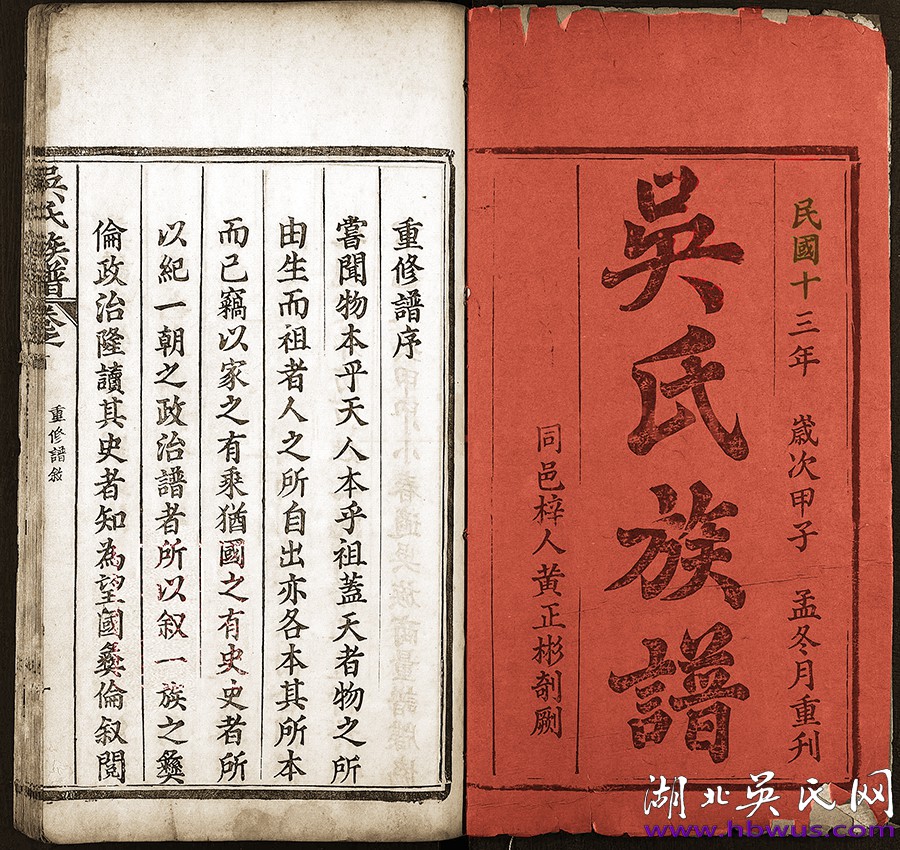 民國十三年 歲次甲子 孟冬月重刊
吳氏族譜
同邑梓人黃正彬剞劂
重修譜序
嘗聞物本乎天人本乎祖蓋天者物之所
由生而祖者人之所自出亦各本其所本
而已竊以家之有乘猶國之有史史者所
以紀一朝之政治譜者所以叙一族之彝
倫政治隆讀其史者知為望國彝倫叙閱
吳氏族譜 卷之
重修譜敘
湖北吳氏网
www.hbwus.com